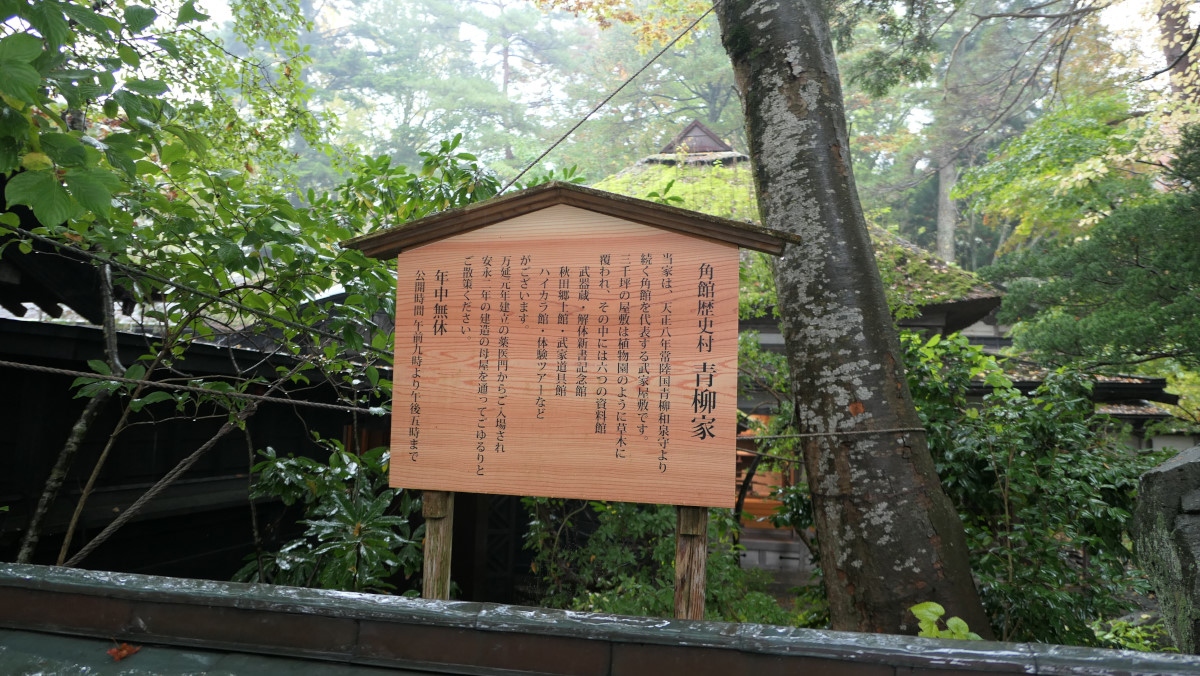 角館歴史村 青柳家
当家は、大正八年常陸国青柳和泉守より
続く角館を代表する武家屋敷です。
三千坪の屋敷は植物園のように草木に
覆われ、その中には六つの資料館
武器蔵・解体新書記念館
秋田郷土館・武家道具館
ハイカラ館・体験ツアーなど
がございます。
万延元年建立の薬医門からご入場され
安永二年の建造の母屋を通ってごゆるりと
ご散策ください。
年中無休
公開時間 午前九時より午後五時まで